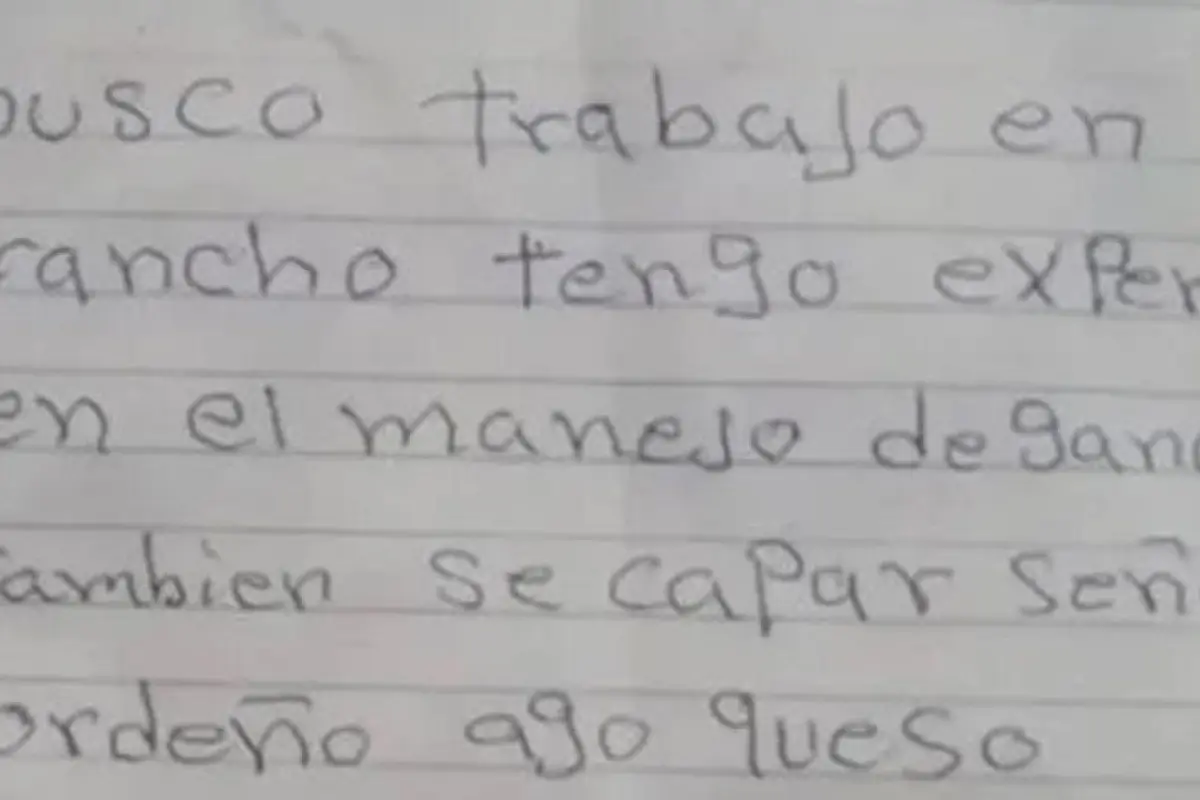 busco trabajo en
rancho tengo exper
en el manejo de gan
tambien se capar señ
ordeño ago queso